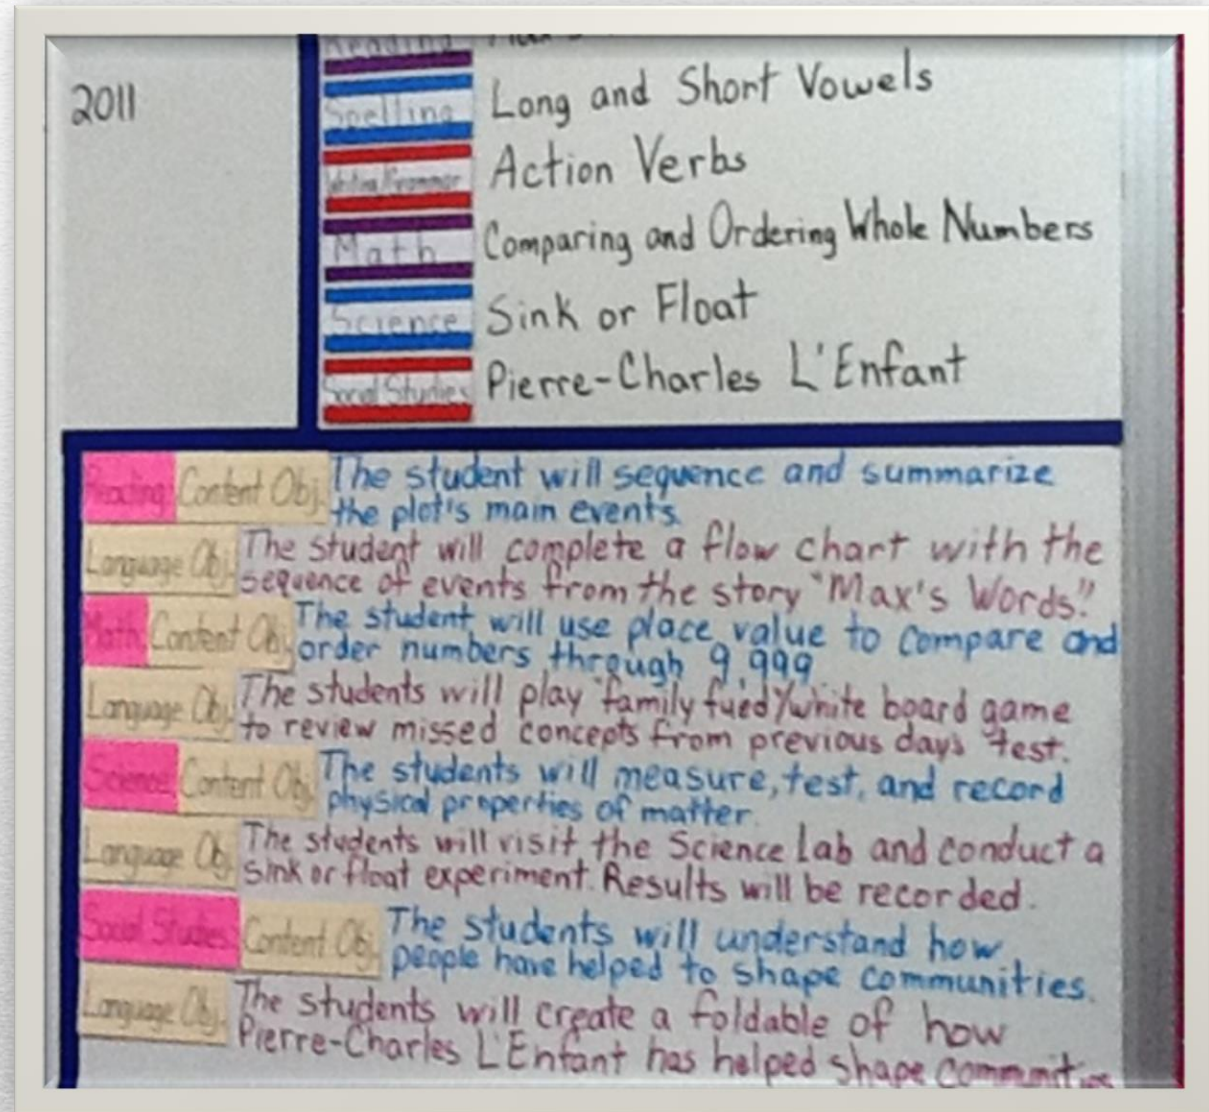 Reading
2011
Spelling Long and Short Vowels
Writing/Grammar Action Verbs
Math Comparing and Ordering Whole Numbers
Science Sink or Float
Social Studies Pierre-Charles L'Enfant
Reading Content Obj. The student will sequence and summarize
the plot's main events.
Language Obj. The student will complete a flow chart with the
sequence of events from the story "Max's Words."
Math Content Obj. The student will use place value to compare and
order numbers through 9,999
Language Obj. The students will play "family fued"/white board game
to review missed concepts from previous day's test.
Science Content Obj. The students will measure, test, and record
physical properties of matter.
Language Obj. The students will visit the Science Lab and conduct a
sink or float experiment. Results will be recorded.
Social Studies Content Obj. The students will understand how
people have helped to shape communities.
Language Obj. The students will create a foldable of how
Pierre-Charles L'Enfant has helped shape communities